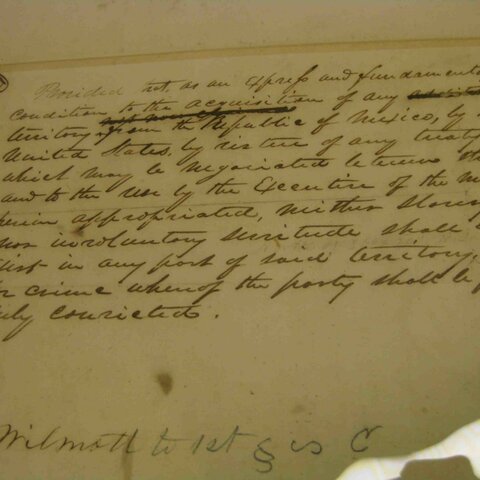 Provided that, as an express and fundamental
condition to the acquisition of any
territory from the Republic of Mexico, by
United States, by virtue of any treaty
which may be negotiated between the
and to the use by the Executive of the
herein appropriated, neither slavery
nor involuntary servitude shall
exist in any part of said territory,
for crime whereof the party shall be
duly convicted.
Wilmott to 1st § is C